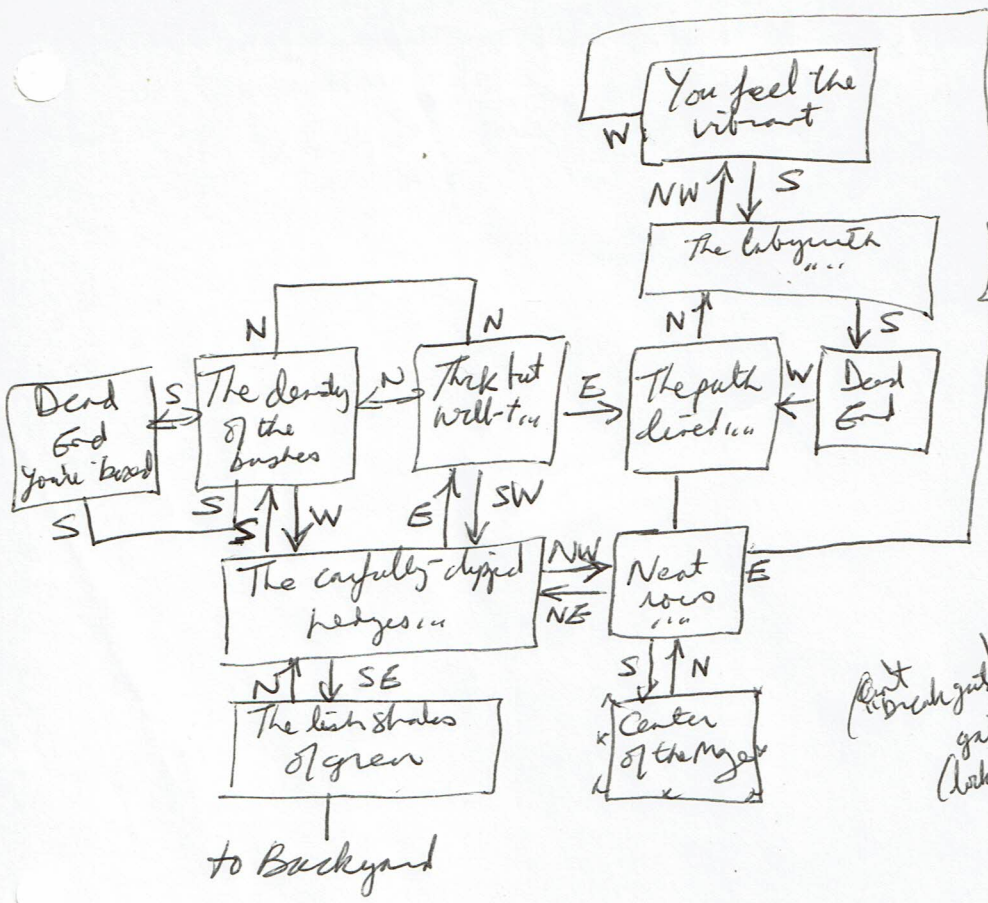 You feel the
vibrant
W
NW
S
The labyrinth
"..
N
S
N
N
Dead
End
you're boxed
S
The density
of the
bushes
N
Thick but
well-t...
E
The path
lined....
W
Dead
End
S
S
S
W
E
SW
The carfully-clipped
hedges...
NW
NE
Neat
rows
....
E
N
SE
S
N
The lush shades
of green
Center
of the Maze
Can't
"break gate
(lock
to Backyard